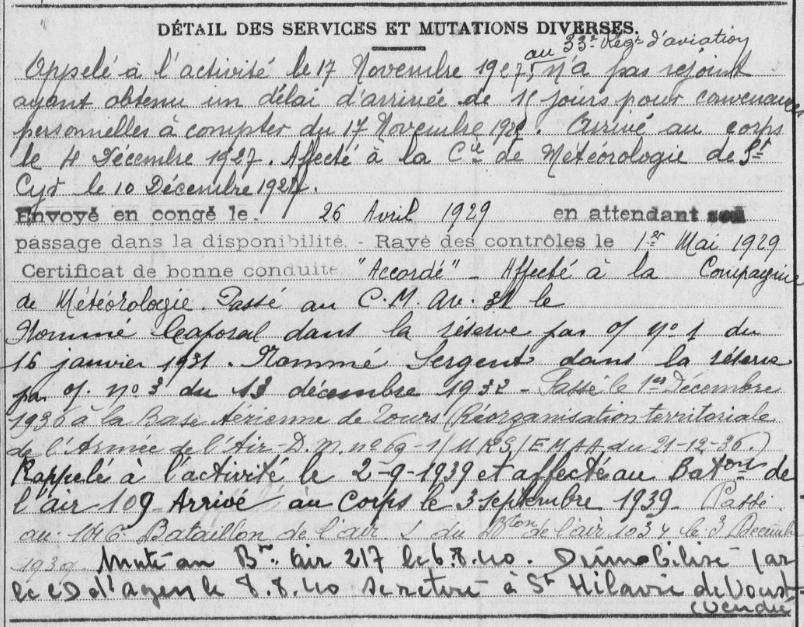 DÉTAIL DES SERVICES ET MUTATIONS DIVERSES.
au 33e Régt d'aviation
Appelé à l'activité le 17 Novembre 1927, n'a pas rejoint
ayant obtenu un délai d'arrivée de 15 jours pour convenances
personnelles à compter du 17 Novembre 1927. Arrivé au corps
le 4 Décembre 1927. Affecté à la Cie de Météorologie de St
Cyr le 10 Décembre 1927.
Envoyé en congé le 26 Avril 1929 en attendant son
passage dans la disponibilité. - Rayé des contrôles le 1er Mai 1929
Certificat de bonne conduite "Accordé" - Affecté à la Compagnie
de Météorologie. Passé au C.M. Av. 31 le
Nommé Caporal dans la réserve par O/ No 1 du
16 janvier 1931. Nommé Sergent dans la réserve
par O/. no 3 du 13 décembre 1932 - Passé le 1er Décembre
1936 à la Base Aérienne de Tours (Réorganisation territoriale
de l'Armée de l'Air - D.M. no 69-1/MRS/EMAA du 21-12-36.)
Rappelé à l'activité le 2-9-1939 et affecté au Baton de
l'air 109 Arrivé au Corps le 3 Septembre 1939. Passé
au Bataillon de l'air du Bton de l'air le 3 Décembre
1939 Muté au Bon air 217 le 6.8.40. Démobilisé par
le CD d'Agen le 8.8.40 se retire à St Hilaire de Voust
(Vendée